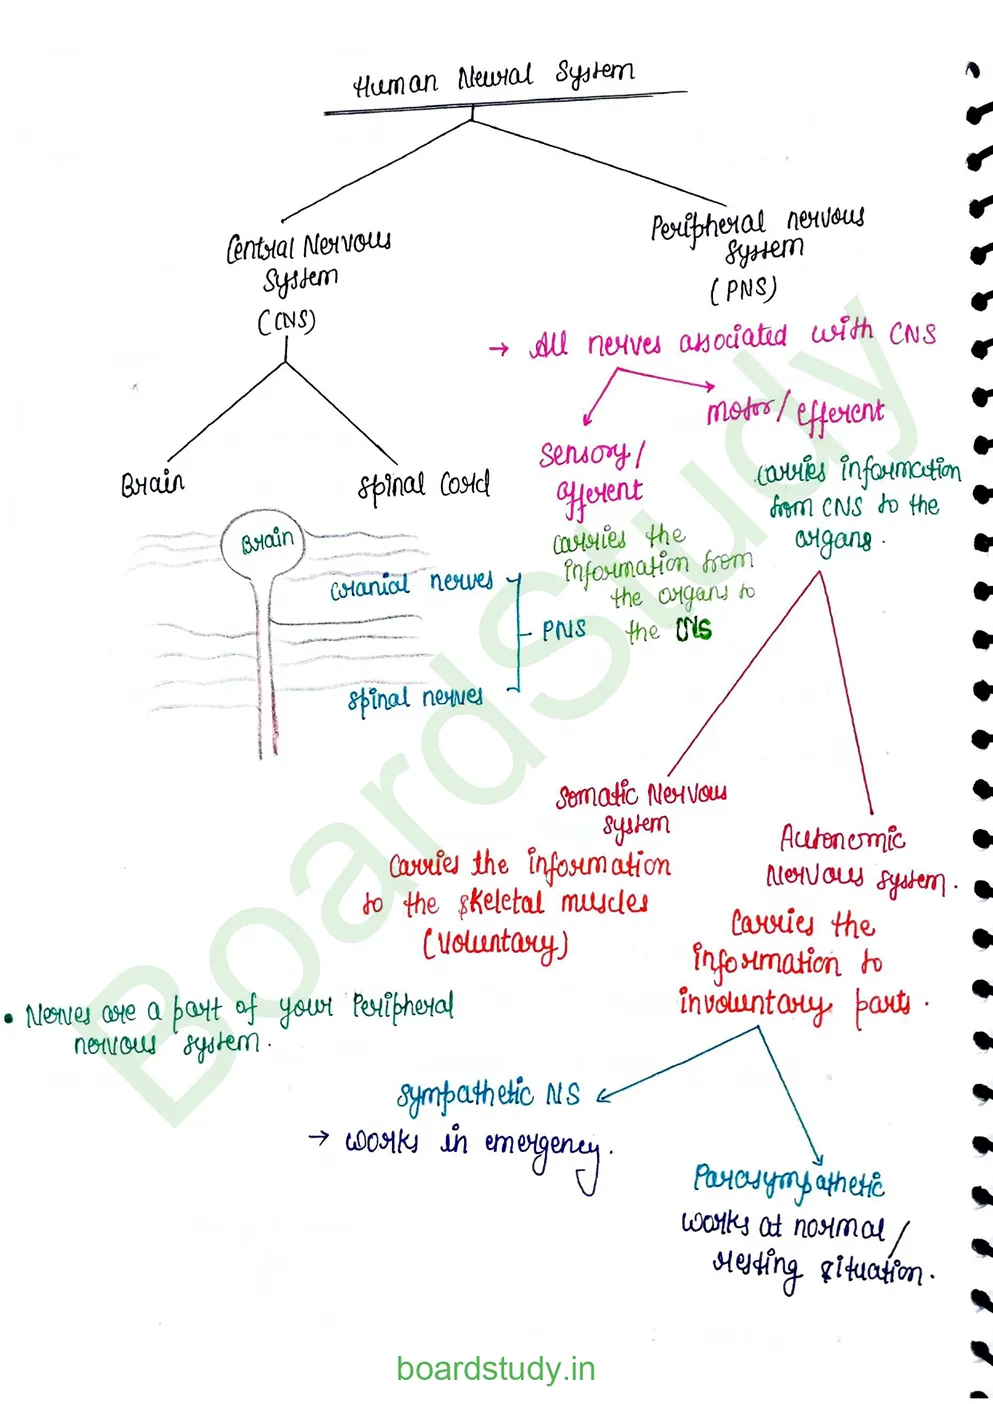 Human Neural System
Central Nervous
System
(CNS)
Peripheral nervous
system
(PNS)
→ All nerves associated with CNS
Brain
Spinal Cord
Sensory/
afferent
carries the
information from
the organs to
the CNS
motor/efferent
carries information
from CNS to the
organs.
Brain
cranial nerves
PNS
spinal nerves
Somatic Nervous
system
Carries the information
to the skeletal muscles
(voluntary)
Autonomic
Nervous system.
Carries the
information to
involuntary parts.
• Nerves are a part of your Peripheral
nervous system.
Sympathetic NS
→ works in emergency.
Parasympathetic
works at normal/
resting situation.
BoardStudy
boardstudy.in